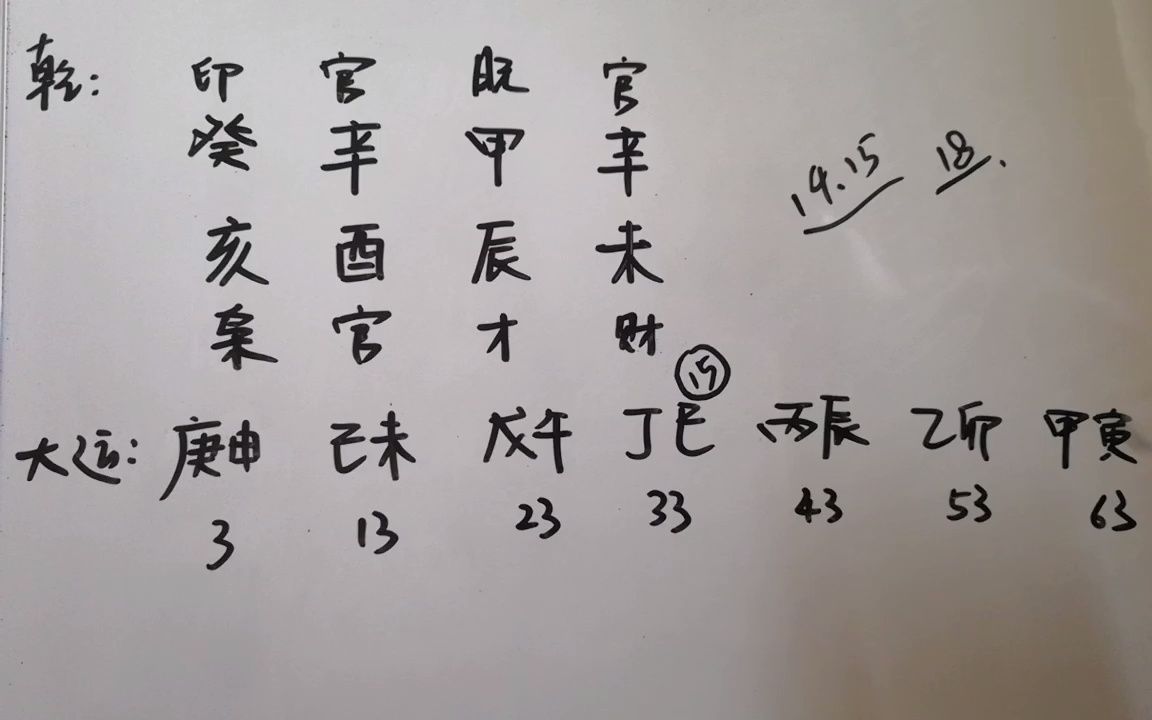 乾: 印 官 日元 官
癸 辛 甲 辛
14.15 18.
亥 酉 辰 未
枭 官 才 财
15
大运: 庚申 己未 戊午 丁巳 丙辰 乙卯 甲寅
3 13 23 33 43 53 63